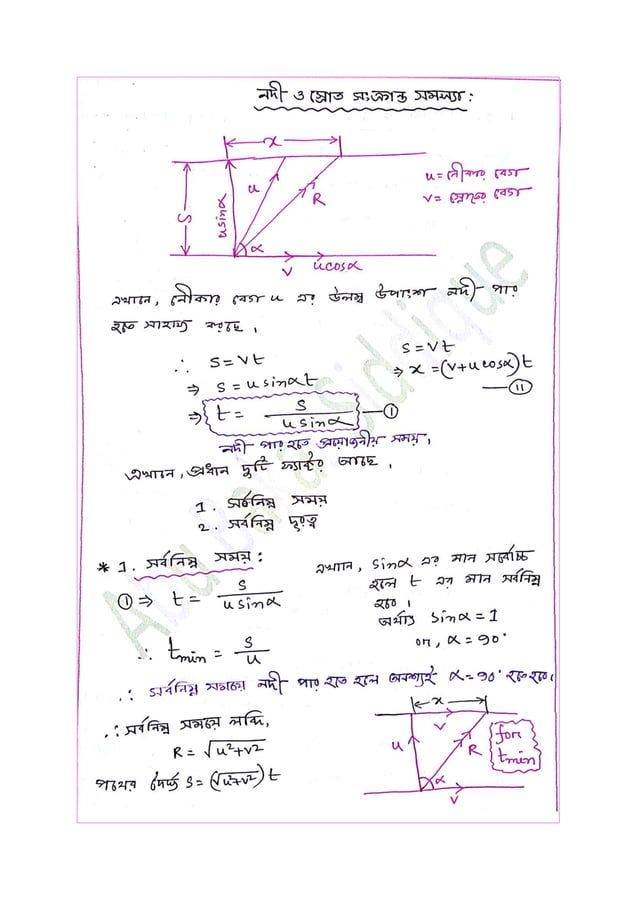 নদী ও স্রোত সংক্রান্ত সমস্যা:
x
S
usinα
u
R
α
v
ucosα
u = নৌকার বেগ
v = স্রোতের বেগ
এখানে, নৌকার বেগ u এর উলম্ব উপাংশ নদী পার
হতে সাহায্য করছে।
∴ S = Vt
⇒ S = usinαt
⇒ t = S / usinα —①
S = Vt
⇒ x = (v+ucosα)t
—⑪
নদী পার হতে প্রয়োজনীয় সময়।
এখানে, প্রধান দুটি ফ্যাক্টর আছে।
1. সর্বনিম্ন সময়
2. সর্বনিম্ন দূরত্ব
* 1. সর্বনিম্ন সময়:
① ⇒ t = S / usinα
∴ tmin = S / u
এখানে, sinα এর মান সর্বোচ্চ
হলে t এর মান সর্বনিম্ন
হবে।
অর্থাৎ sinα = 1
or, α = 90°
∴ সর্বনিম্ন সময়ে নদী পার হতে হলে অবশ্যই α = 90° হতে হবে।
∴ সর্বনিম্ন সময়ে লব্ধি,
R = √u²+v²
পথের দৈর্ঘ্য S = (√u²+v²) t
x
v
u
R
α
v
for
tmin
Abu Bakar Siddique